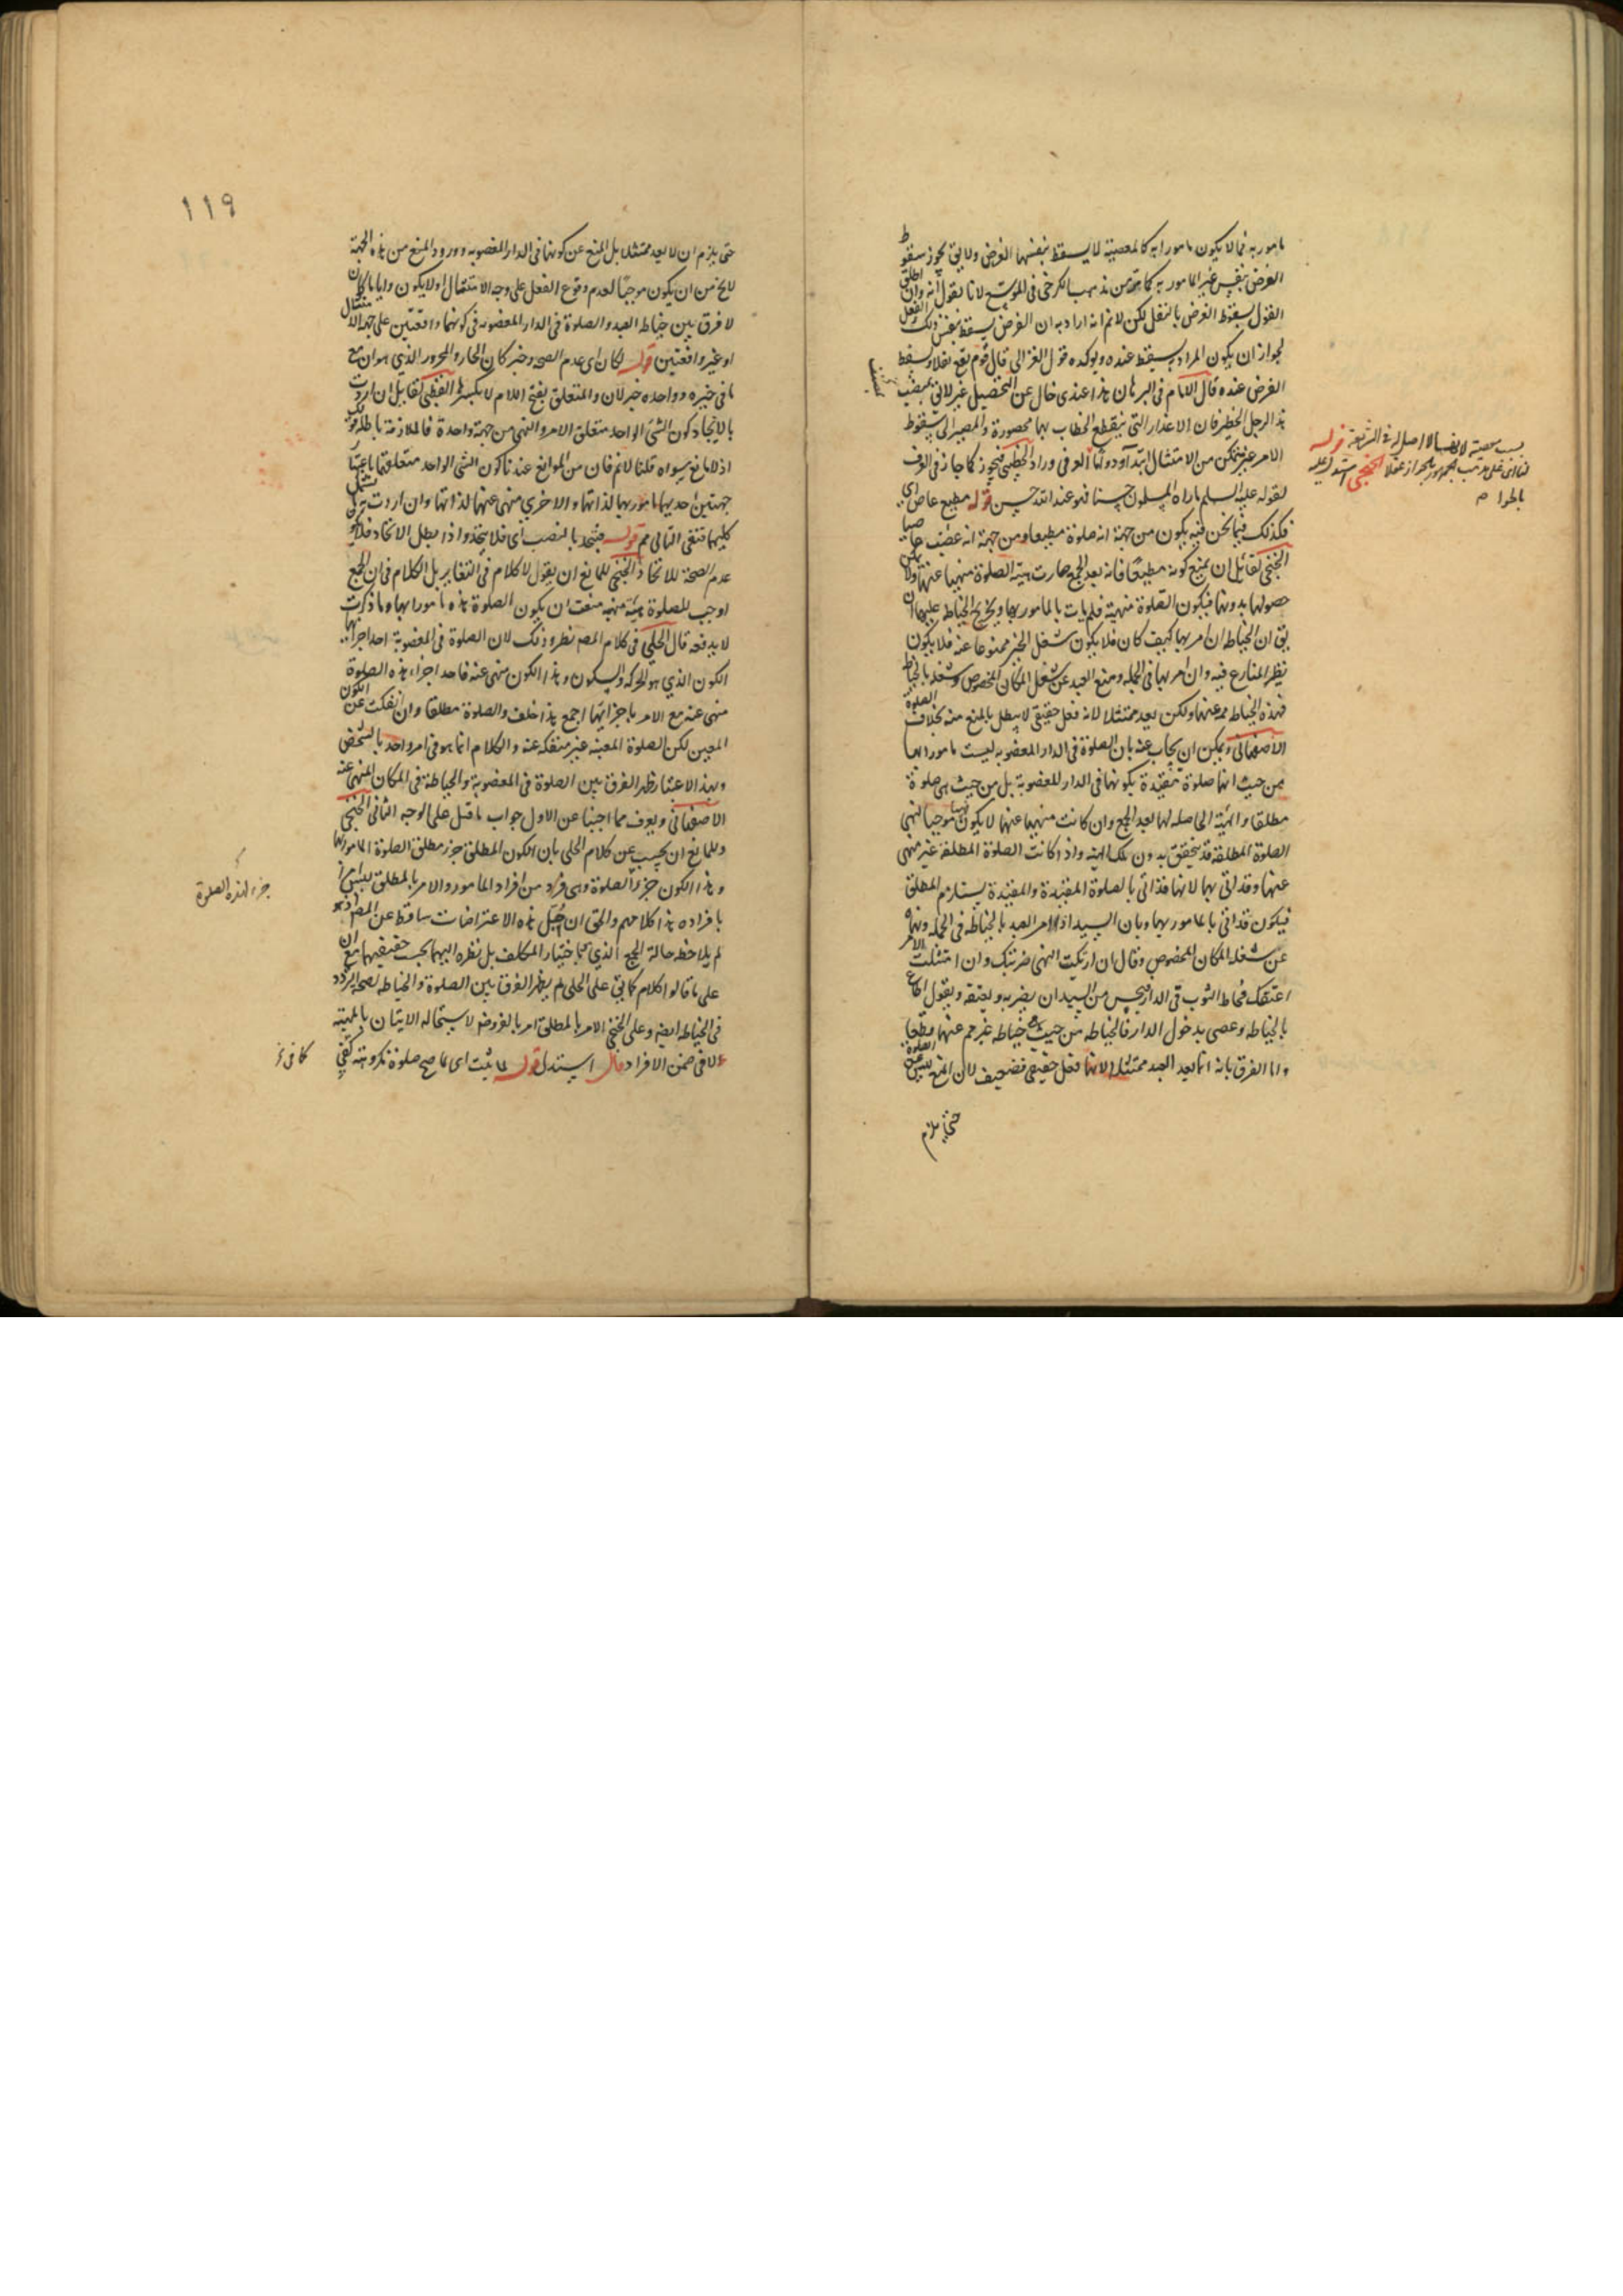 مامور به فما لا يكون مامورا به كالمعصية لا يسقط بنفسها الفرض ولا يق يجوز سقوط
الفرض بنفس غير المامور به كما هو من مذهب الكرخى فى الموسع لانا نقول انه وان اطلق
القول بسقوط الفرض بالنفل لكن لانم انه اراد به ان الفرض يسقط بنفس ذلك الفعل
لجواز ان يكون المراد يسقط عنده ويوكده قول الغزالى قال قوم يقع نفلا ويسقط
الفرض عنده قال الامام فى البرهان هذا عندى خال عن التحصيل غير لائق بمنصب
هذا الرجل الخطير فان الاعذار التى ينقطع الخطاب بها محصورة والمصير الى سقوط
الامر عن متمكن من الامتثال ابتداء ودواما
لقوله عليه السلم ماراه المسلمون حسنا فهو عند الله حسن قوله مطيع عاص اى
فكذلك فيما نحن فيه يكون من جهة انه صلوة مطيعا ومن جهة انه غصب عاصيا
الخنجى لقائل ان يمنع كونه مطيعا فانه بعد الجمع صارت هيئة الصلوة منهيا عنها ولا يمكن
حصولها بدونها فيكون الصلوة منهية فلم يات بالمامور بها ويخرج الخياط عليهما ان
يق ان الخياطة ان امر بها كيف كان فلا يكون شغل الحيز ممنوعا عنه فلا يكون
نظير المتنازع فيه وان امر بها فى الجملة ومنع العبد عن شغل المكان المخصوص وشغله بالخياطة
فهذه الخياطة مم عنها ولكن يعد ممتثلا لانه فعل حقيقى لا يبطل بالمنع منه بخلاف الصلوة
الاصفهانى ويمكن ان يجاب عنه بان الصلوة فى الدار المغصوبة ليست مامورا بها
من حيث انها صلوة مقيدة بكونها فى الدار المغصوبة بل من حيث هى صلوة
مطلقا والهيئة الحاصلة لها بعد الجمع وان كانت منهيا عنها لا يكون نهيها موجبا لنهى
الصلوة المطلقة فقد يتحقق بدون تلك الهيئة واذا كانت الصلوة المطلقة غير منهى
عنها وقد اتى بها لانها قد اتى بالصلوة المقيدة والمقيدة يستلزم المطلق
فيكون قد اتى بالمامور بها وبان السيد اذا امر العبد بالخياطة فى الجملة ونهاه
عن شغله المكان المخصوص وقال ان ارتكبت النهى ضربتك وان امتثلت الامر
اعتقتك فخاط الثوب فى الدار فيحسن من السيد ان يضربه ويعتقه ويقول اطاع
بالخياطة وعصى بدخول الدار فالخياطة من حيث هى خياطة غير مم عنها قطعا
واما الفرق بانه انما يعد العبد ممتثلا لانها فعل حقيقى فضعيف لان المنع ليس عن الصلوة
حتى يلزم
بسبب معصية لا
قوله
الخنجى
بالحرام
١١٩
حتى يلزم ان لا يعد ممتثلا بل المنع عن كونها فى الدار المغصوبه وورود المنع من هذه الجهة
لا يخ من ان يكون موجبا لعدم وقوع الفعل على وجه الامتثال او لا يكون وايا ما كان
لا فرق بين خياطة العبد والصلوة فى الدار المغصوبه فى كونهما واقعتين على جهة الامتثال
او غير واقعتين قوله لكان اى عدم الصحه وخبر كان الجار والمجرور الذى هو ان مع
ما فى خبره وواحده خبر لان والمتعلق بفتح اللام لا بكسرها القطبى لقائل ان اردت
بالاتحاد كون الشئ الواحد متعلق الامر والنهى من جهة واحدة فالملازمة باطلة قولك
اذ لا مانع سواه قلنا لانم فان من الموانع عندنا كون الشئ الواحد متعلقهما باعتبار
جهتين احديهما مامور بها لذاتها والاخرى منهى عنها لذاتها وان اردت ما يشمل
كليهما فنفى التالى مم قوله فيتحد بالنصب اى فلا يتحد واذا بطل الاتحاد فلا يكون
عدم الصحة للاتحاد الخنجى للمانع ان يقول لا كلام فى التغاير بل الكلام فى ان الجمع
اوجب للصلوة هيئة منهيه منعت ان يكون الصلوة هذه مامورا بها وما ذكرت
لا يدفعه قال الحلى فى كلام المص نظر وذلك لان الصلوة فى المغصوبة احد اجزائها
الكون الذى هو الحركه والسكون وهذا الكون منهى عنه فاحد اجزاء هذه الصلوة
منهى عنه مع الامر باجزائها اجمع هذا خلف والصلوة مطلقا وان انفكت عن الكون
المعين لكن الصلوة المعينه غير منفكه عنه والكلام انما هو فى امر واحد بالشخص
وبهذا الاعتبار ظهر الفرق بين الصلوة فى المغصوبة والخياطة فى المكان المنهى عنه
الاصفهانى ويعرف مما اجبنا عن الاول جواب ما قيل على الوجه الثانى الخنجى
وللمانع ان يجيب عن كلام الحلى بان الكون المطلق جزء مطلق الصلوة المامور بها
وهذا الكون جزء الصلوة وهى فرد من افراد المامور والامر بالمطلق ليس امرا
بافراده هذا كلامهم والحق ان كل هذه الاعتراضات ساقط عن المص اذ هو
لم يلاحظ حالة الجمع الذى هى باختيار المكلف بل نظره اليهما بحسب حقيقتهما مع ان
على ما قالوا كلام كما يق على الحلى لم يظهر الفرق بين الصلوة والخياطه لصحة التردد
فى الخياطه ايضا وعلى الخنجى الامر بالمطلق امر بالفروض لاستحاله الاتيان بالمهيته
الا فى ضمن الافراد قال استدل قوله لما ثبت اى لما صح صلوة مكروهة
جزء لهذه الصلوة